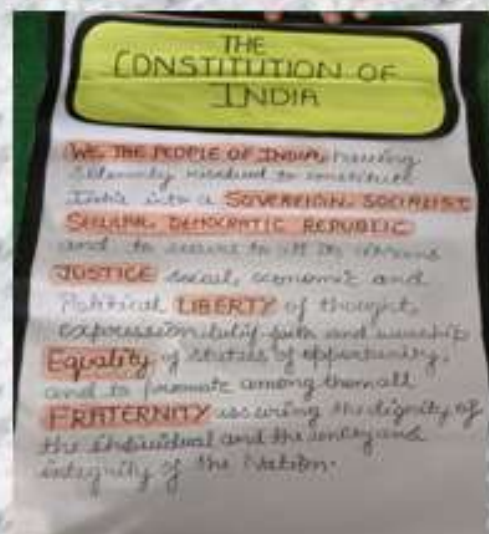 THE
CONSTITUTION OF
INDIA
WE THE PEOPLE OF INDIA, having
solemnly resolved to constitute
India into a SOVEREIGN SOCIALIST
SECULAR DEMOCRATIC REPUBLIC
and to secure to all its citizens
JUSTICE social, economic and
Political LIBERTY of thought,
expression, belief, faith and worship
Equality of status of opportunity,
and to promote among them all
FRATERNITY assuring the dignity of
the individual and the unity and
integrity of the Nation.